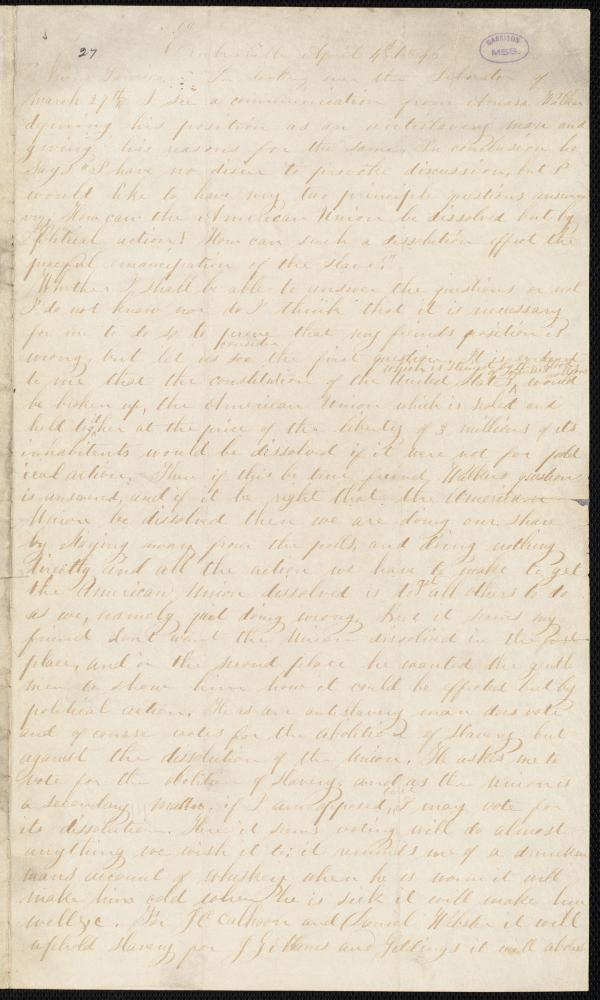 27
GARRISON
MSS.
April 4th
In looking over the Liberator of
March 27th I see a communication from Amasa Walker
defining his position as an antislavery man and
giving his reasons for the same. In conclusion he
says "I have no desire to provoke discussion, but I
would like to have my two principle questions
viz, How can the American Union be dissolved but by
Political action? How can such a dissolution effect the
peaceful emancipation of the slave?"
Whether I shall be able to answer the questions or not
I do not know nor do I think that it is necessary
for me to do so to prove that my friends position is
consider
wrong, but let us see the first question. It is evident
which is strength
to me that the constitution of the United States, would
be broken up, the American Union which is sealed and
held together at the price of the liberty of 3 millions of its
inhabitants would be dissolved if it were not for polit
ical action. Then if this be true friend Walkers question
is answered, and if it be right that the American
Union be dissolved then we are doing our share
by staying away from the polls, and doing nothing
directly and all the action we have to make to get
the American Union dissolved is to get all others to do
as we, namely quit doing wrong. But it seems my
friend dont want the Union dissolved in the first
place, and in the second place he wanted the gentle
men to show him how it could be effected but by
political action. He as an antislavery man does vote
and of course votes for the abolition of slavery but
against the dissolution of the Union. He asks me to
vote for the abolition of slavery and as the Union is
a secondary matter, if I am opposed, I may vote for
its dissolution. Here it seems voting will do almost
anything we wish it to; it reminds me of a drunken
mans account of whiskey when he is warm it will
make him cold when he is sick it will make him
well &c. For J C Calhoun and Daniel Webster it will
uphold slavery for and Giddings it will abolish